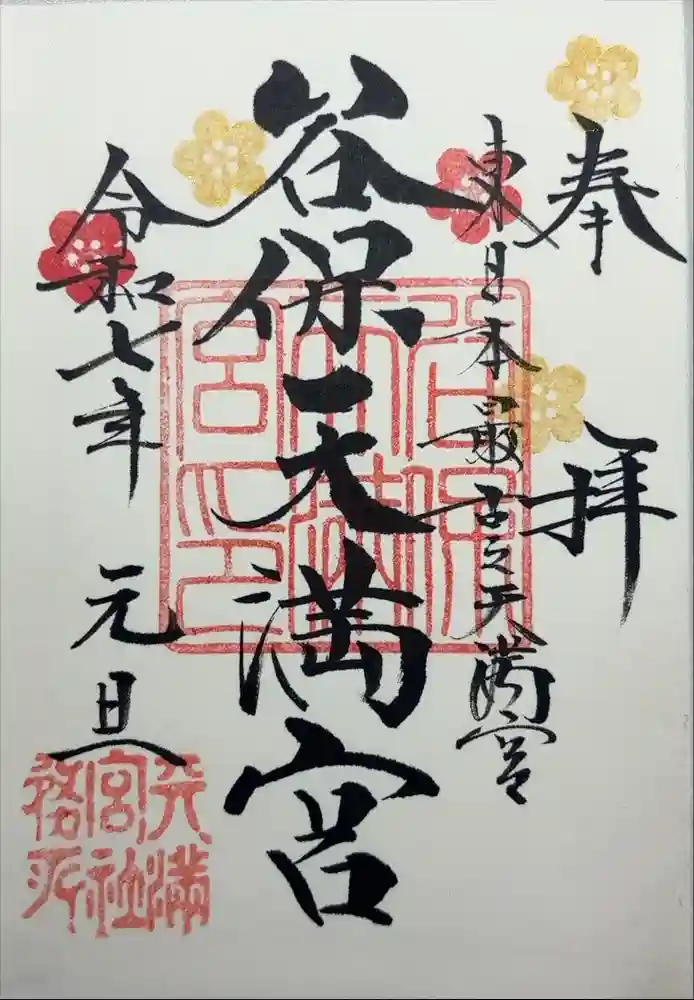 奉拝
東日本最古之天満宮
谷保天満宮
令和七年元旦
天満
宮社
務所